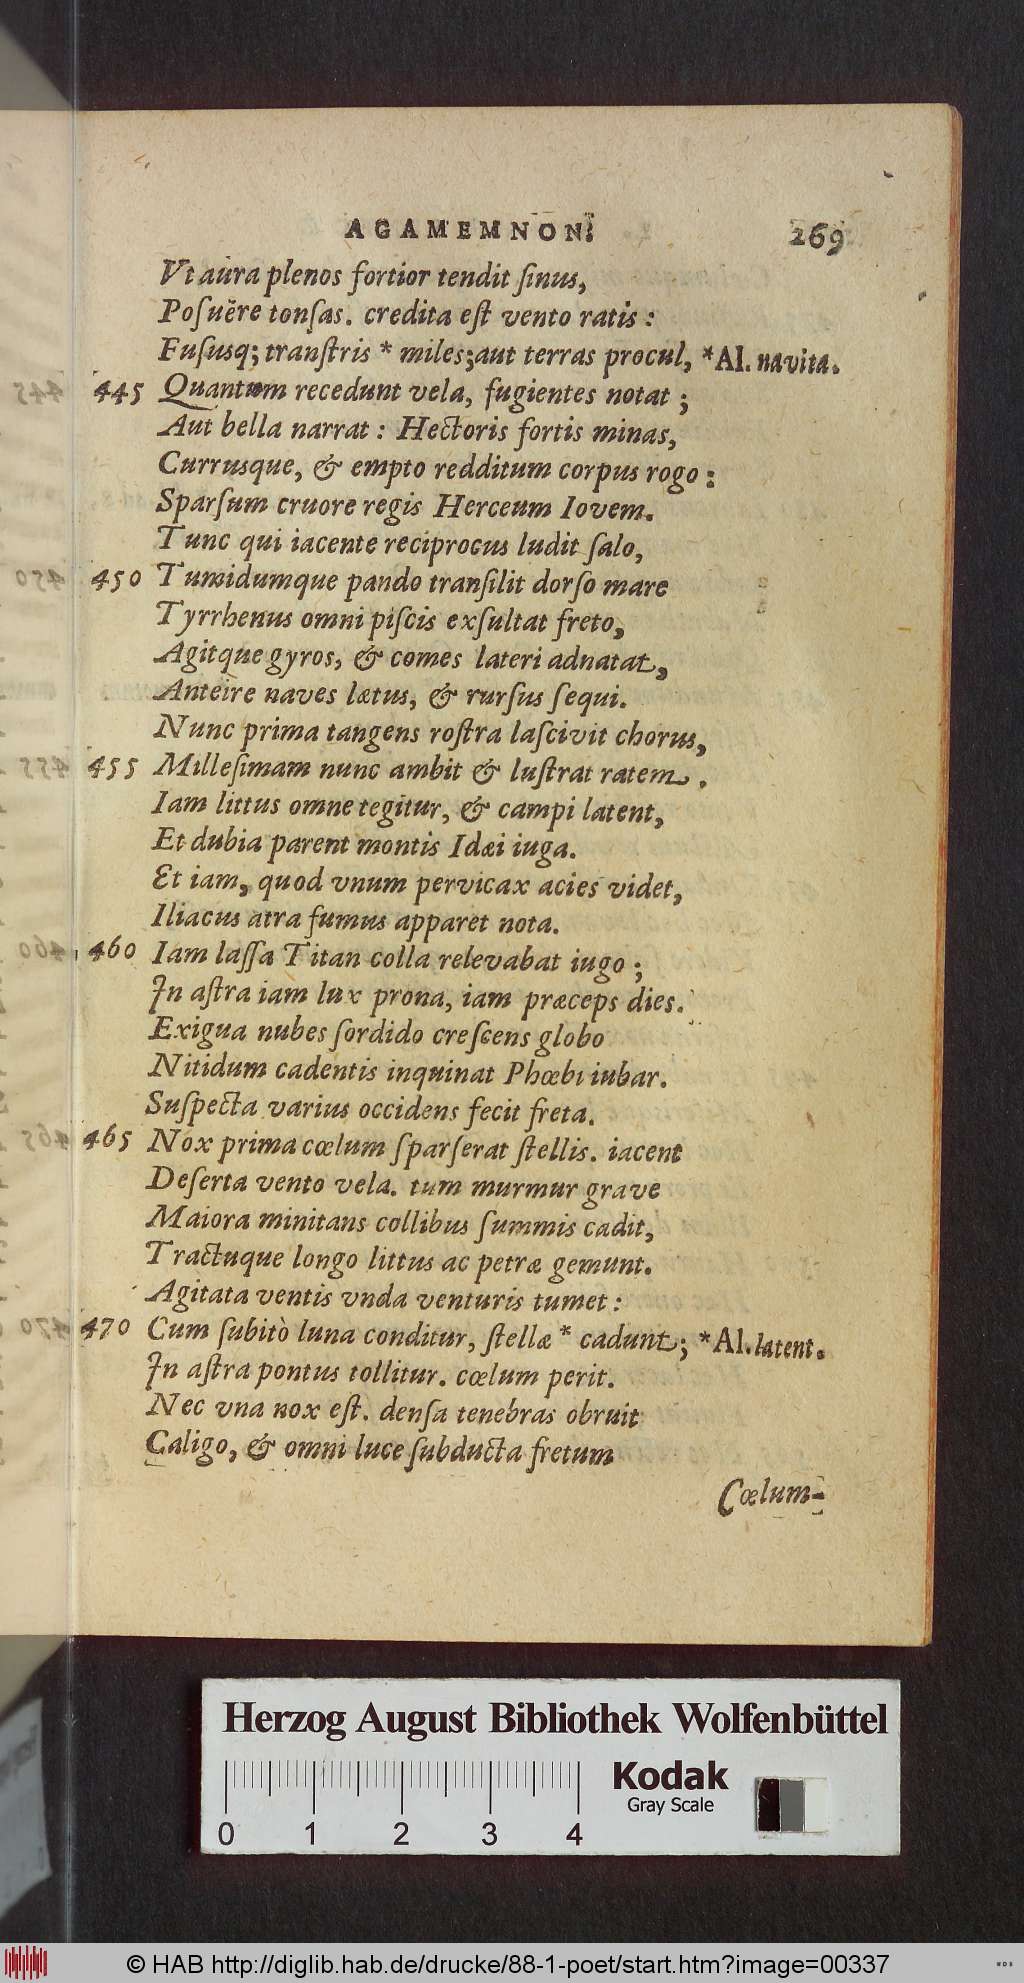 AGAMEMNON. 269
Vt aura plenos fortior tendit ſinus,
Poſuēre tonſas. credita eſt vento ratis :
Fuſusq; tranſtris * miles; aut terras procul, *Al. navita.
445 Quantum recedunt vela, fugientes notat ;
Aut bella narrat : Hectoris fortis minas,
Currusque, & empto redditum corpus rogo :
Sparſum cruore regis Herceum Iovem.
Tunc qui iacente reciprocus ludit ſalo,
450 Tumidumque pando tranſilit dorſo mare
Tyrrhenus omni piſcis exſultat freto,
Agitque gyros, & comes lateri adnatat,
Anteire naves lætus, & rurſus ſequi.
Nunc prima tangens roſtra laſcivit chorus,
455 Milleſimam nunc ambit & luſtrat ratem.
Iam littus omne tegitur, & campi latent,
Et dubia parent montis Idæi iuga.
Et iam, quod vnum pervicax acies videt,
Iliacus atra fumus apparet nota.
460 Iam laſſa Titan colla relevabat iugo ;
In aſtra iam lux prona, iam præceps dies.
Exigua nubes ſordido creſcens globo
Nitidum cadentis inquinat Phœbi iubar.
Suſpecta varius occidens fecit freta.
465 Nox prima cœlum ſparſerat ſtellis. iacent
Deſerta vento vela. tum murmur grave
Maiora minitans collibus ſummis cadit,
Tractuque longo littus ac petræ gemunt.
Agitata ventis vnda venturis tumet :
470 Cum ſubitò luna conditur, ſtellæ * cadunt ; *Al. latent.
In aſtra pontus tollitur. cœlum perit.
Nec vna nox eſt. denſa tenebras obruit
Caligo, & omni luce ſubducta fretum
Cœlum-
Herzog August Bibliothek Wolfenbüttel
Kodak
Gray Scale
0 1 2 3 4
© HAB http://diglib.hab.de/drucke/88-1-poet/start.htm?image=00337